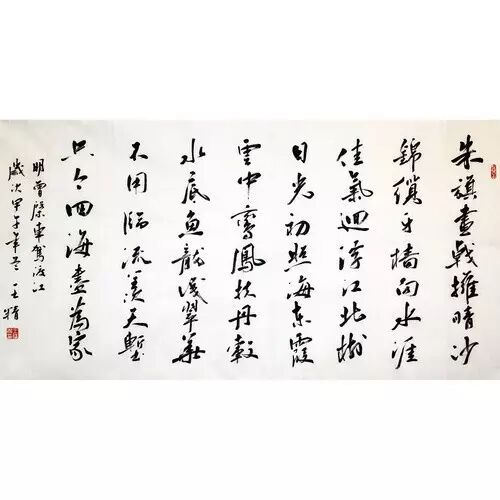 朱旗畫戟擁晴沙
錦纜牙檣向水涯
佳氣迥浮江北樹
日光初照海東霞
雲中鸞鳳扶丹轂
水底魚龍識翠華
不用臨流羨天塹
只今四海盡為家
明曾棨車駕渡江
歲次甲午年冬王精